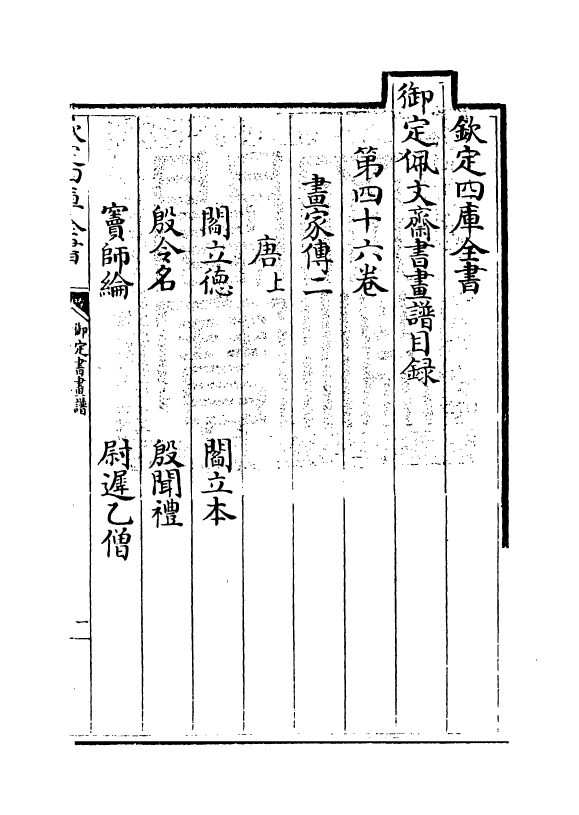 欽定四庫全書
御定佩文齋書畫譜目録
第四十六卷
畫家傳二
唐上
閻立德 閻立本
殷令名 殷聞禮
竇師綸 尉遲乙僧
御定書畫譜
二